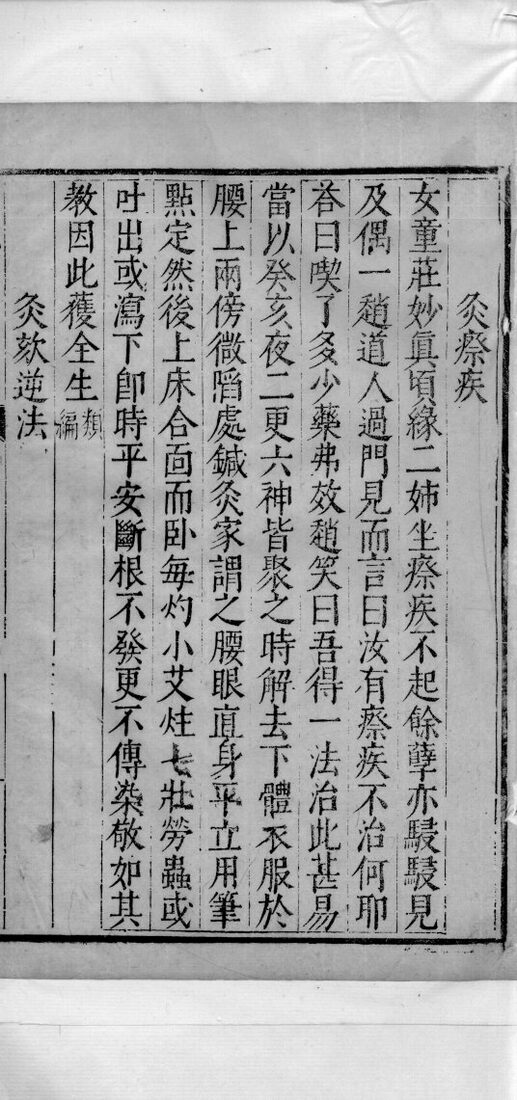 灸瘵疾
女童莊妙真頃緣二姉坐瘵疾不起餘孽亦駸駸見
及偶一趙道人過門見而言曰汝有瘵疾不治何耶
荅曰喫了多少藥弗效趙笑曰吾得一法治此甚易
當以癸亥夜二更六神皆聚之時解去下體衣服於
腰上兩傍微䧟處鍼灸家謂之腰眼直身平立用筆
點定然後上床合面而卧每灼小艾炷七壯勞蟲或
吐出或瀉下卽時平安斷根不發更不傳染敬如其
教因此獲全生類編
灸欬逆法